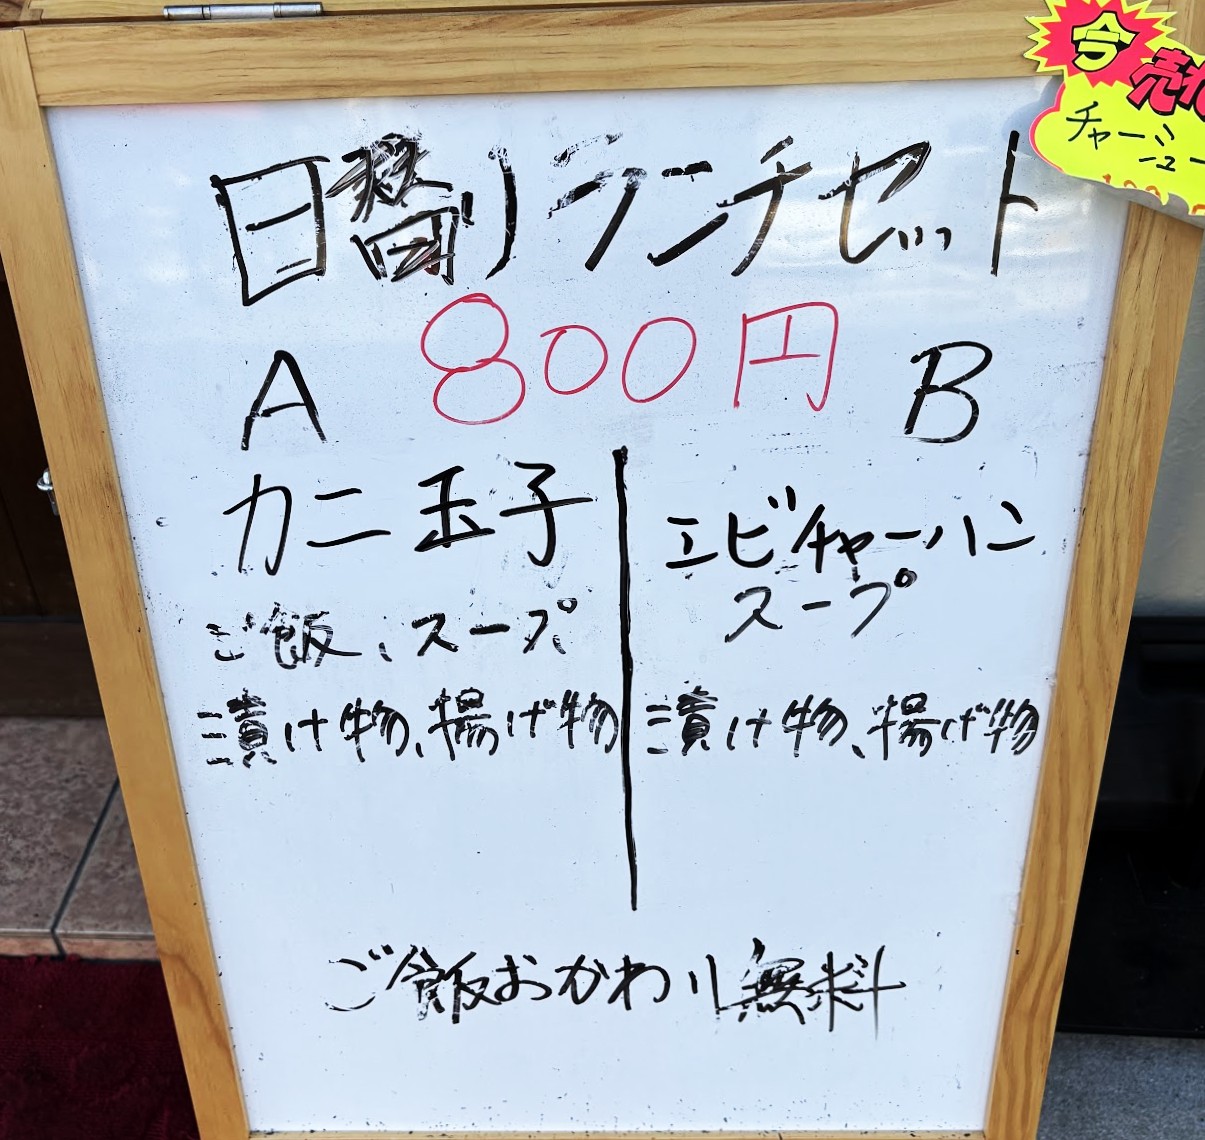 今売れ
チャーシュー
日替りランチセット
800円
A
B
カニ玉子
ご飯、スープ
漬け物、揚げ物
エビチャーハン
スープ
漬け物、揚げ物
ご飯おかわり無料